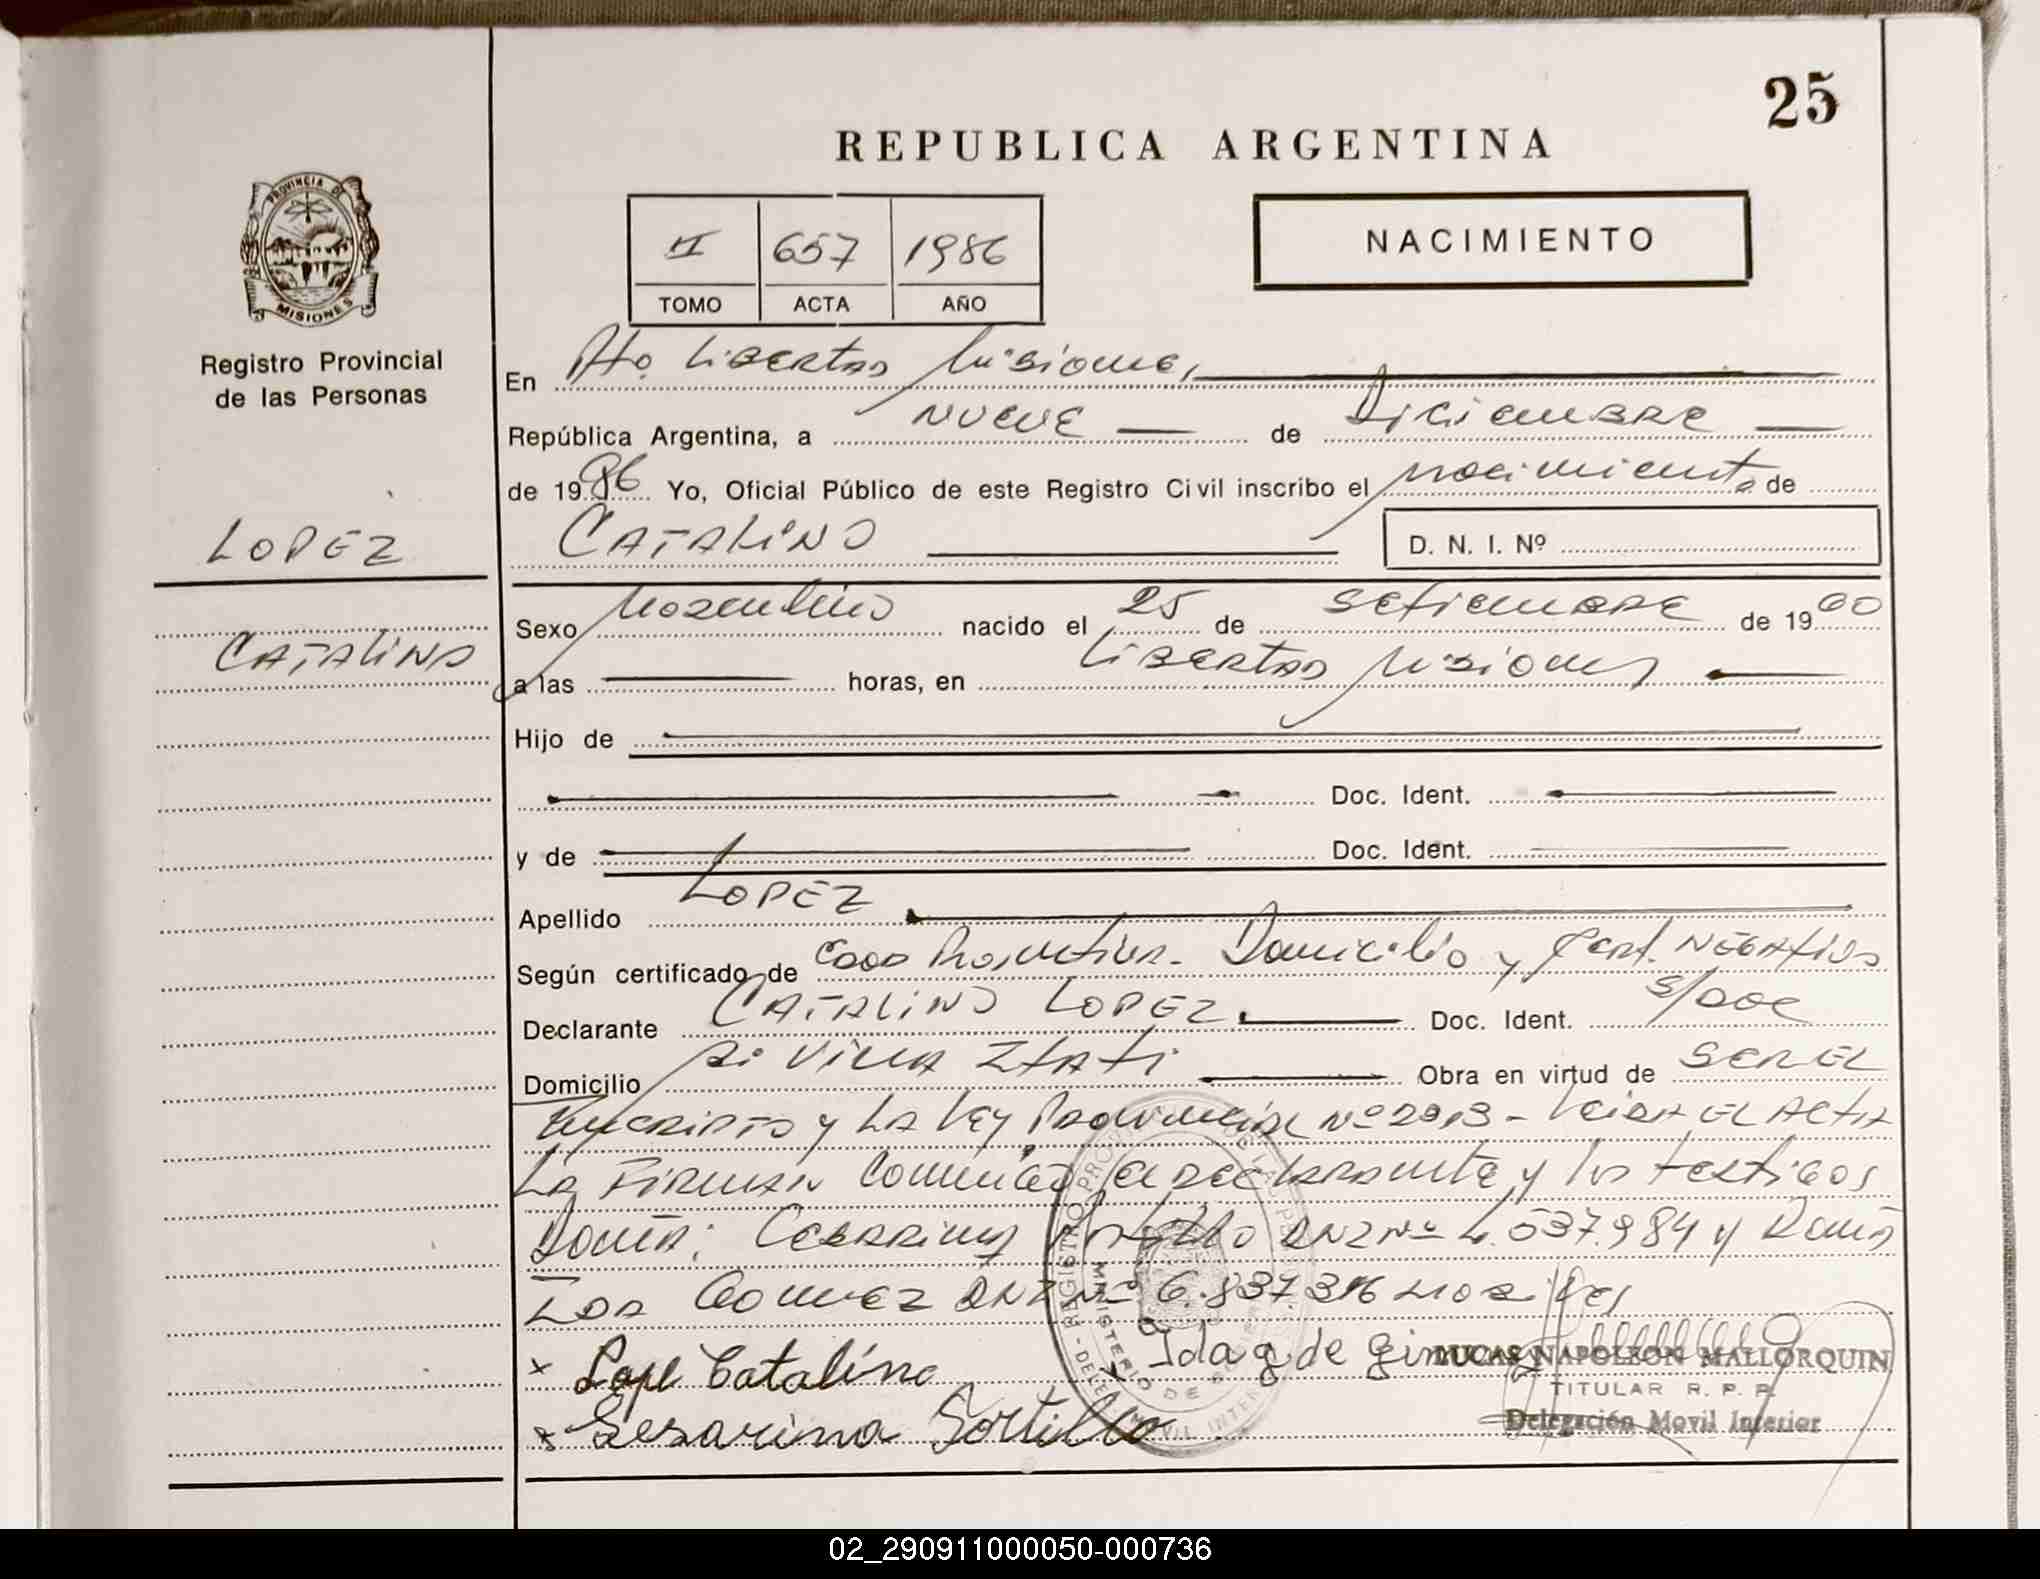 25
REPUBLICA ARGENTINA
PROVINCIA DE
MISIONES
Registro Provincial
de las Personas
II 657 1986
TOMO ACTA AÑO
NACIMIENTO
En Pto Libertad Misiones
República Argentina, a NUEVE de Diciembre
de 1986 Yo, Oficial Público de este Registro Civil inscribo el nacimiento de
LOPEZ
CATALINO
D. N. I. Nº
CATALINO
Sexo Masculino nacido el 25 de Setiembre de 1960
a las horas, en Libertad Misiones
Hijo de
Doc. Ident.
y de Doc. Ident.
Apellido LOPEZ
Según certificado de Domicilio y Cert. NEGATIVO
Declarante CATALINO LOPEZ Doc. Ident. S/DOC
Domicilio Villa Obra en virtud de SER EL
Inscripto y LA Ley Provincial Nº 2913 - Leida EL ACTA
LA FIRMAN Conmigo el declarante y los testigos
Doña: Cesarina Portillo DNI Nº 4.537.984 y Doña
Ida Gomez DNI Nº 6.837.316
x Lope Catalino x Ida g. de gimenez LUCAS NAPOLEON MALLORQUIN
TITULAR R. P. P.
x Sesarina Portillo Delegación Movil Interior
02_290911000050-000736